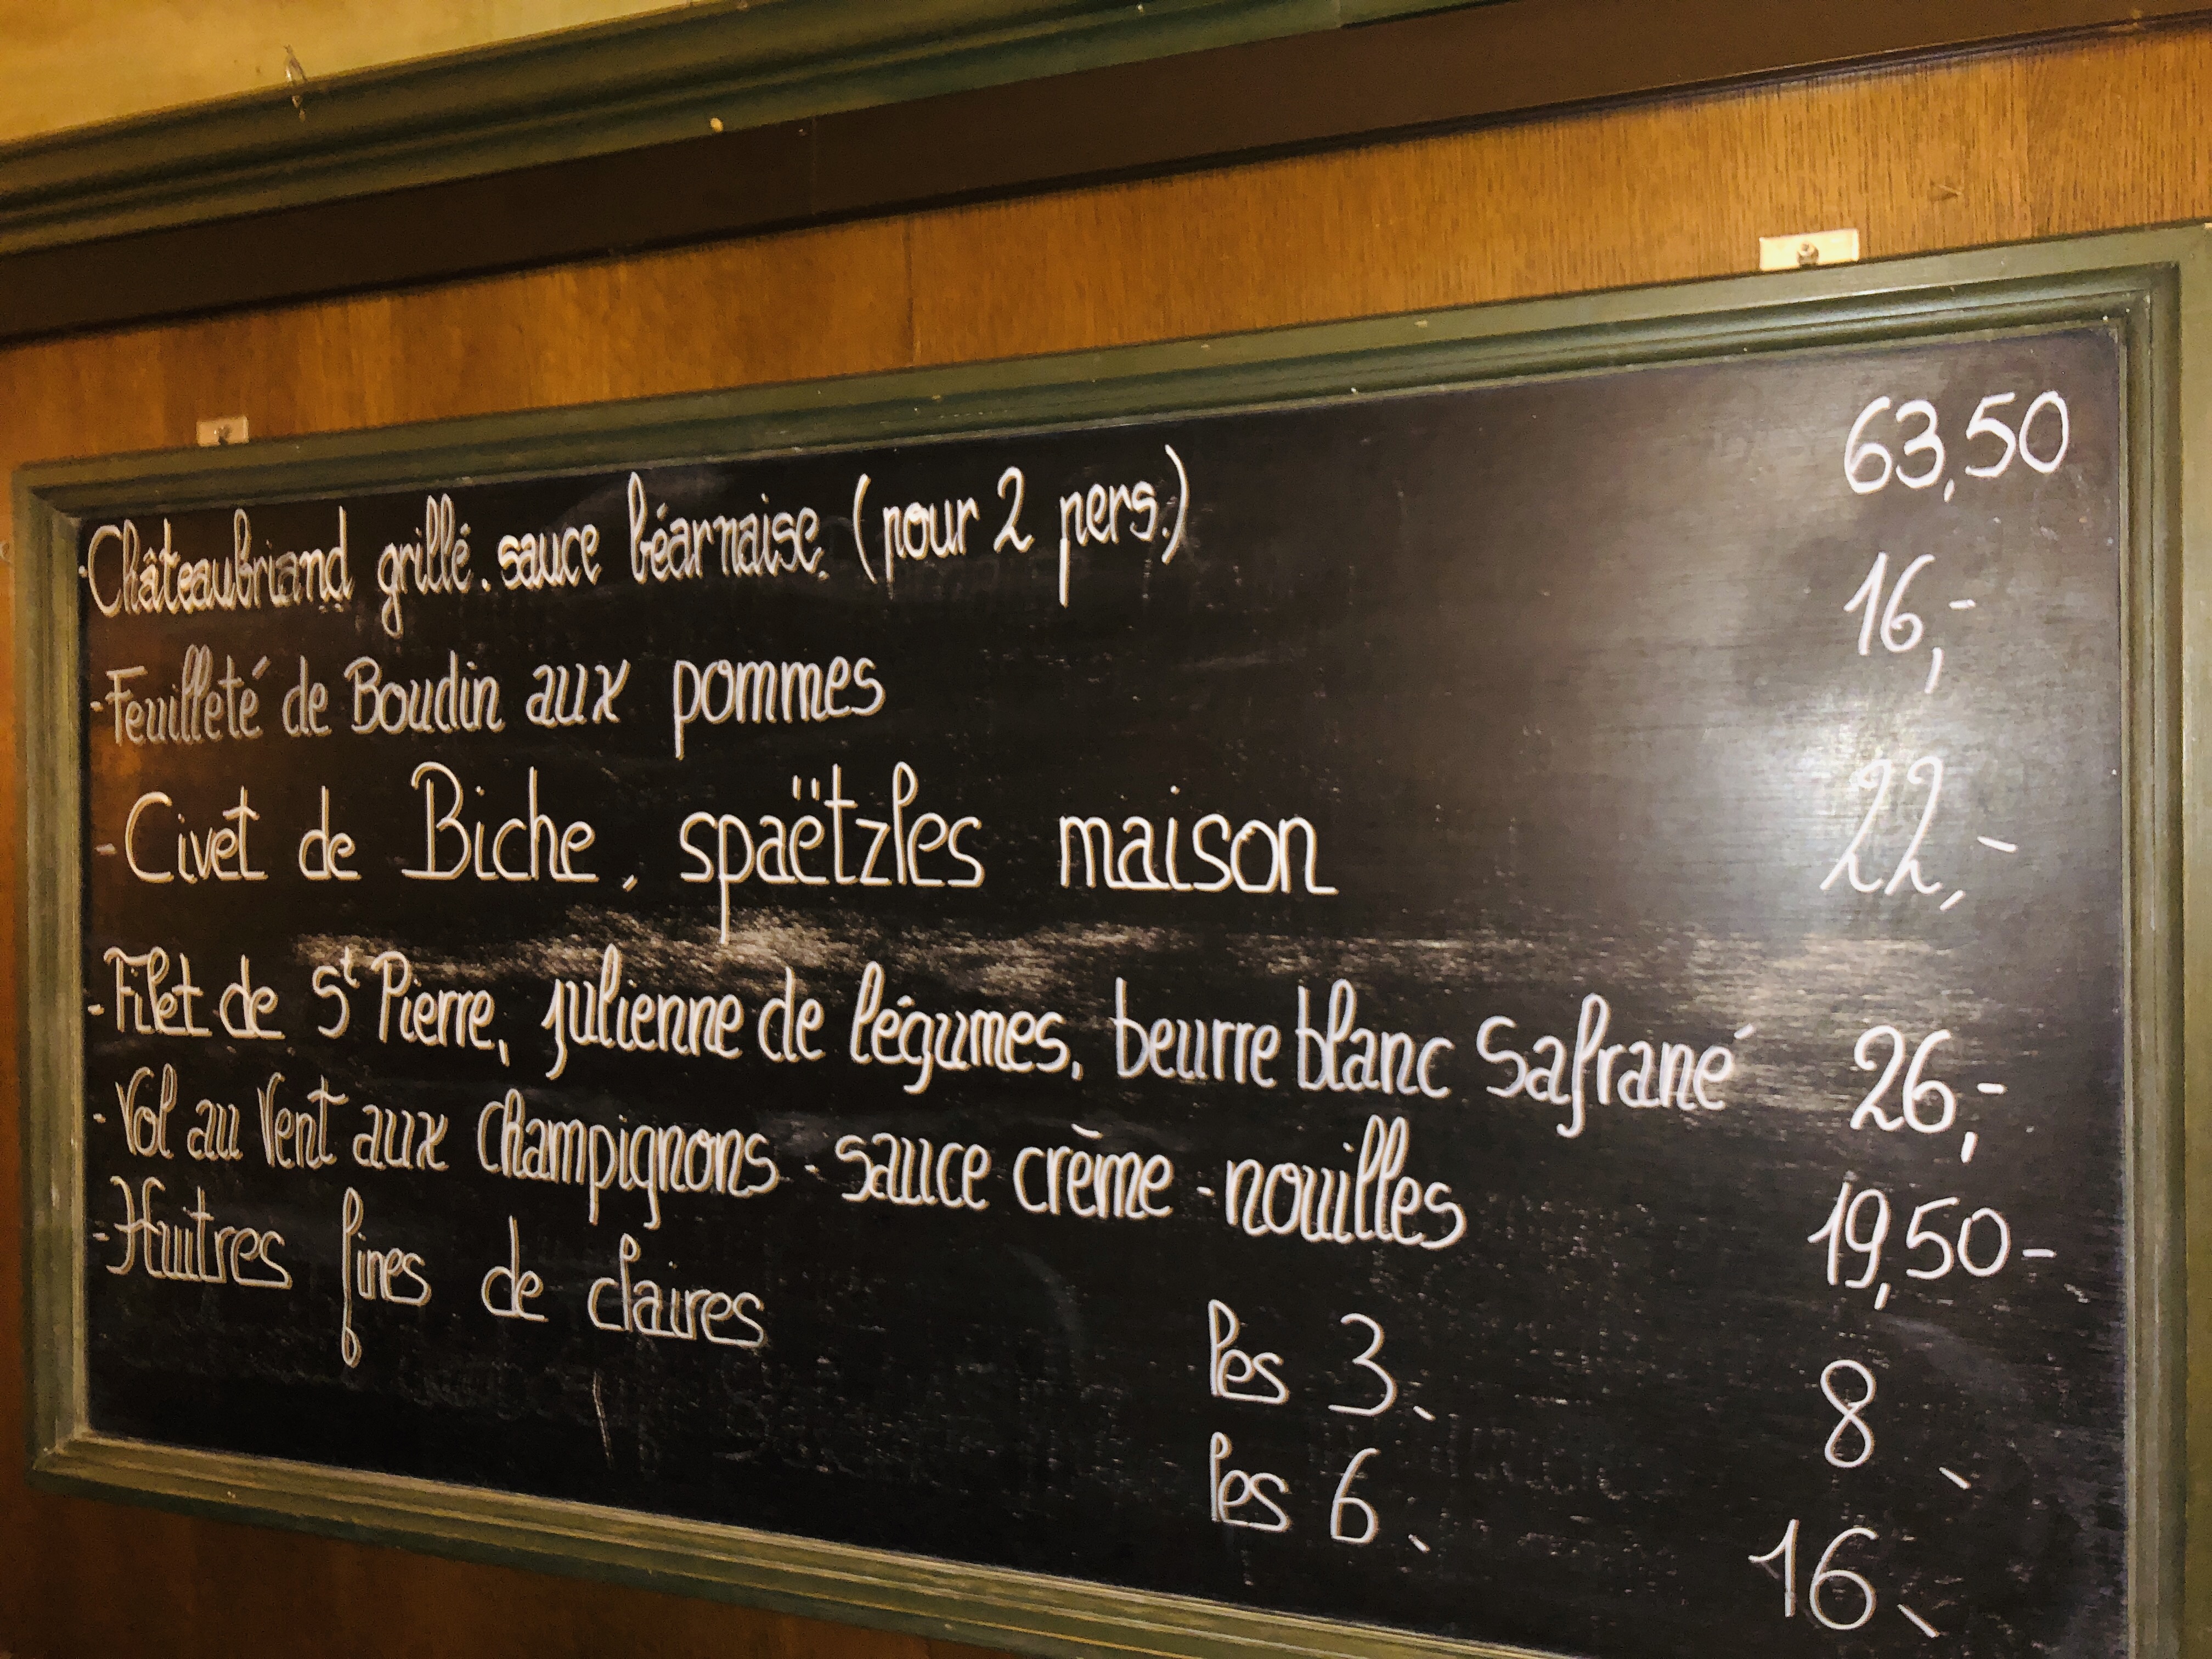 -Châteaubriand grillé. sauce béarnaise. (pour 2 pers.) 63,50
-Feuilleté de Boudin aux pommes 16,-
-Civet de Biche, spaëtzles maison 22,-
-Filet de St Pierre, julienne de légumes, beurre blanc Safrané 26,-
-Vol au Vent aux champignons - sauce crème - nouilles 19,50-
-Huitres fines de claires
les 3, 8,
les 6, 16,